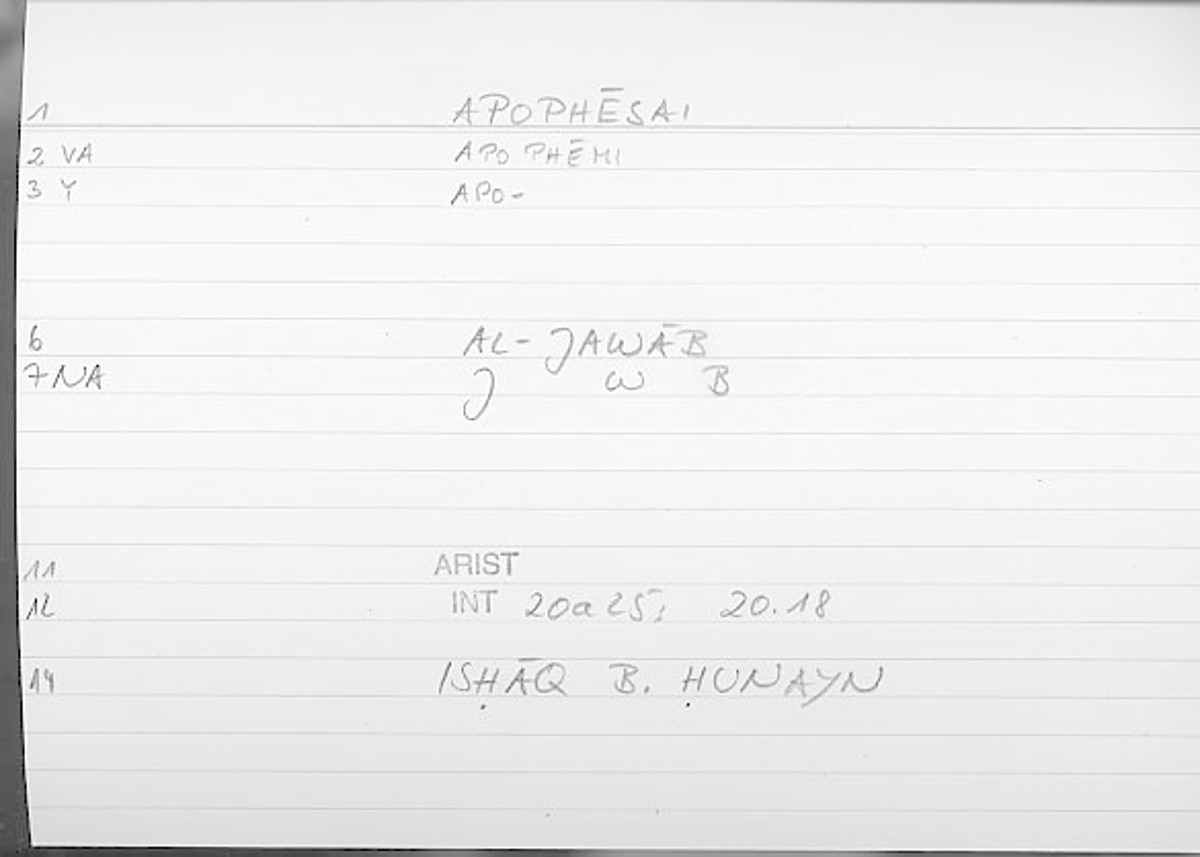 1 APOPHĒSAI
2 VA APOPHĒMI
3 Y APO-
6 AL-JAWĀB
7 NA J W B
11 ARIST
12 INT 20a25; 20.18
14 ISḤĀQ B. ḤUNAYN